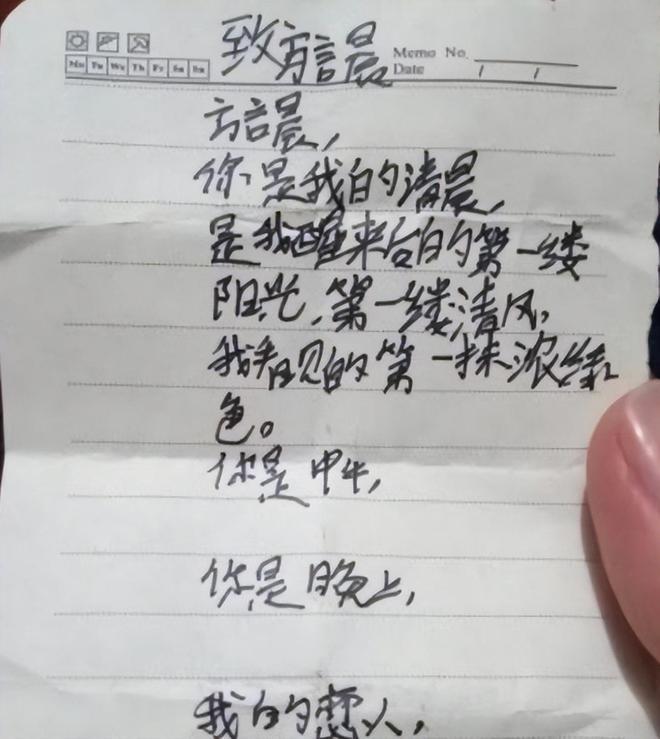 Memo No.
Mo Tu We Th Fr Sa Su
Date / /
致方言晨
方言晨,
你是我的清晨,
是我醒来后的第一缕
阳光,第一缕清风,
我看见的第一抹浓绿
色。
你是中午,
你是晚上,
我的恋人,